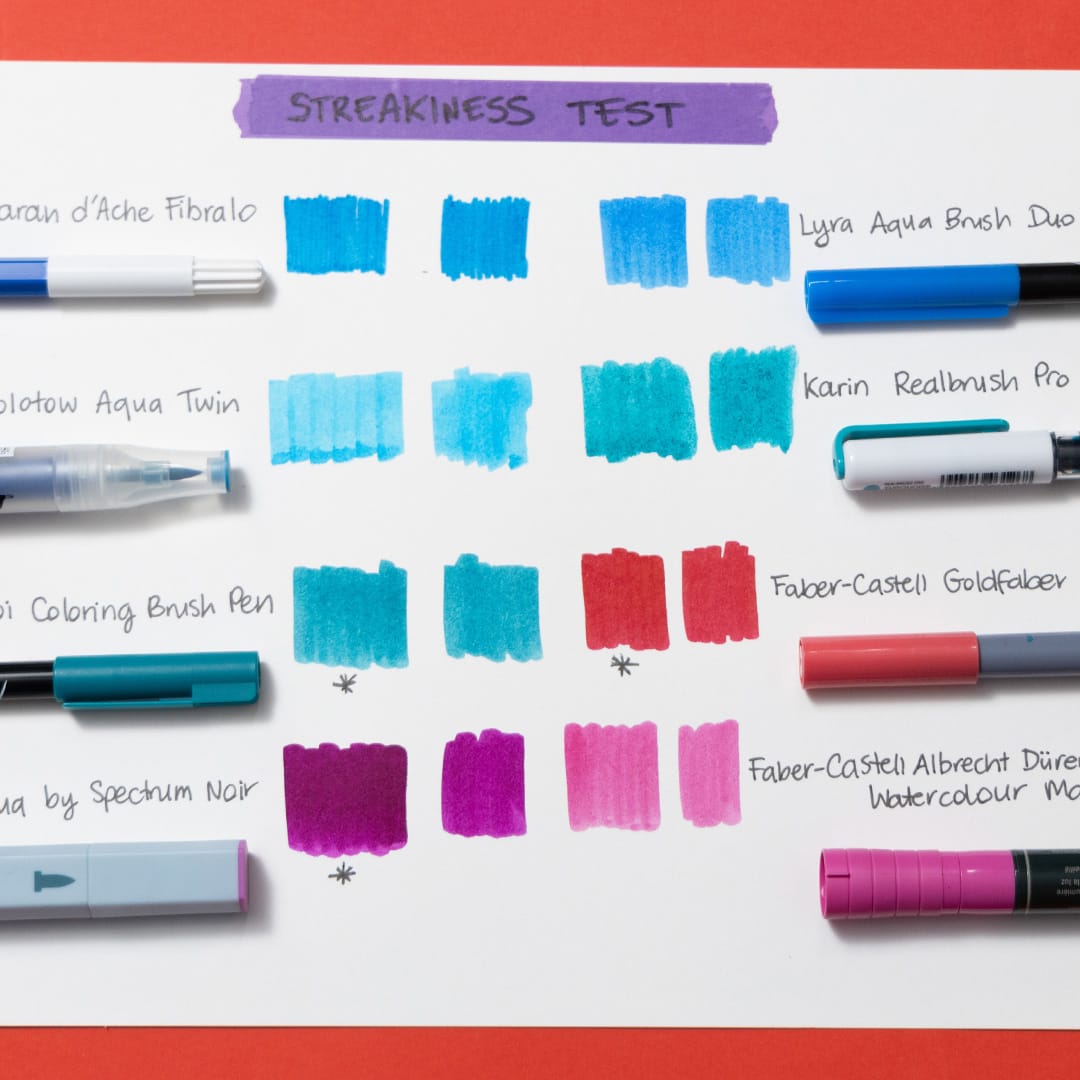 STREAKINESS TEST
aran d'Ache Fibralo
Lyra Aqua Brush Duo
olotow Aqua Twin
Karin Realbrush Pro
oi Coloring Brush Pen
Faber-Castell Goldfaber
*
*
ua by Spectrum Noir
Faber-Castell Albrecht Dürer
Watercolour Ma
*
la luz